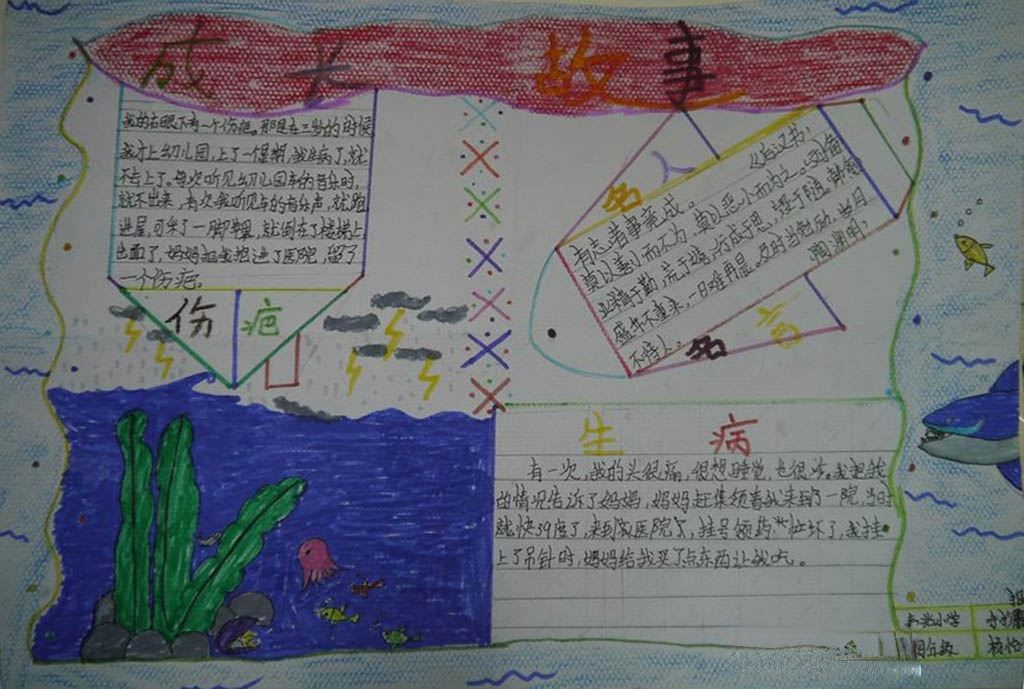 成长故事
我的右眼下有一个伤疤。那是在三岁的时候
我才上幼儿园，上了一星期，我生病了，就
不去上了。每次听见幼儿园车的音乐时，
就不出来，有次我听见车的音乐声，就跑
进屋，可来了一脚，就倒在了楼梯上
出血了，妈妈把我抱进了医院，留了
一个伤疤。
伤疤
名人
名言
《后汉书》
有志者事竟成。
莫以善小而不为，莫以恶小而为之。刘备
业精于勤，荒于嬉；行成于思，毁于随。韩愈
盛年不重来，一日难再晨。及时当勉励，岁月
不待人。 陶渊明
生病
有一次，我的头很痛，很想睡觉，也很冷，我把我
的情况告诉了妈妈，妈妈赶集领着我来到了一院，当时
就快39度了，来到医院，挂号领药忙坏了，我挂
上了吊针时，妈妈给我买了点东西让我吃。
小学
四年级